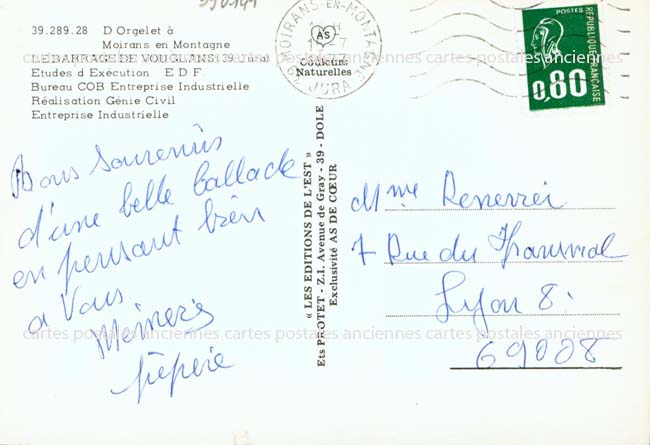 39.289.28 D Orgelet à
Moirans en Montagne
LE BARRAGE DE VOUGLANS (39 Jura)
Etudes d Exécution E D F
Bureau COB Entreprise Industrielle
Réalisation Génie Civil
Entreprise Industrielle
MOIRANS-EN-MONTAGNE
39 JURA
AS
Couleurs
Naturelles
POSTES
REPUBLIQUE FRANCAISE
0,80
Bons souvenirs
d'une belle ballade
en pensant bien
a Vous
pépère
« LES EDITIONS DE L'EST »
Ets PROTET - Z.I. Avenue de Gray - 39 - DOLE
Exclusivité AS DE CŒUR
Mme
7 Rue du
Lyon 8.
69008
cartes postales anciennes cartes postales anciennes cartes postales anciennes
cartes postales anciennes cartes postales anciennes cartes postales anciennes